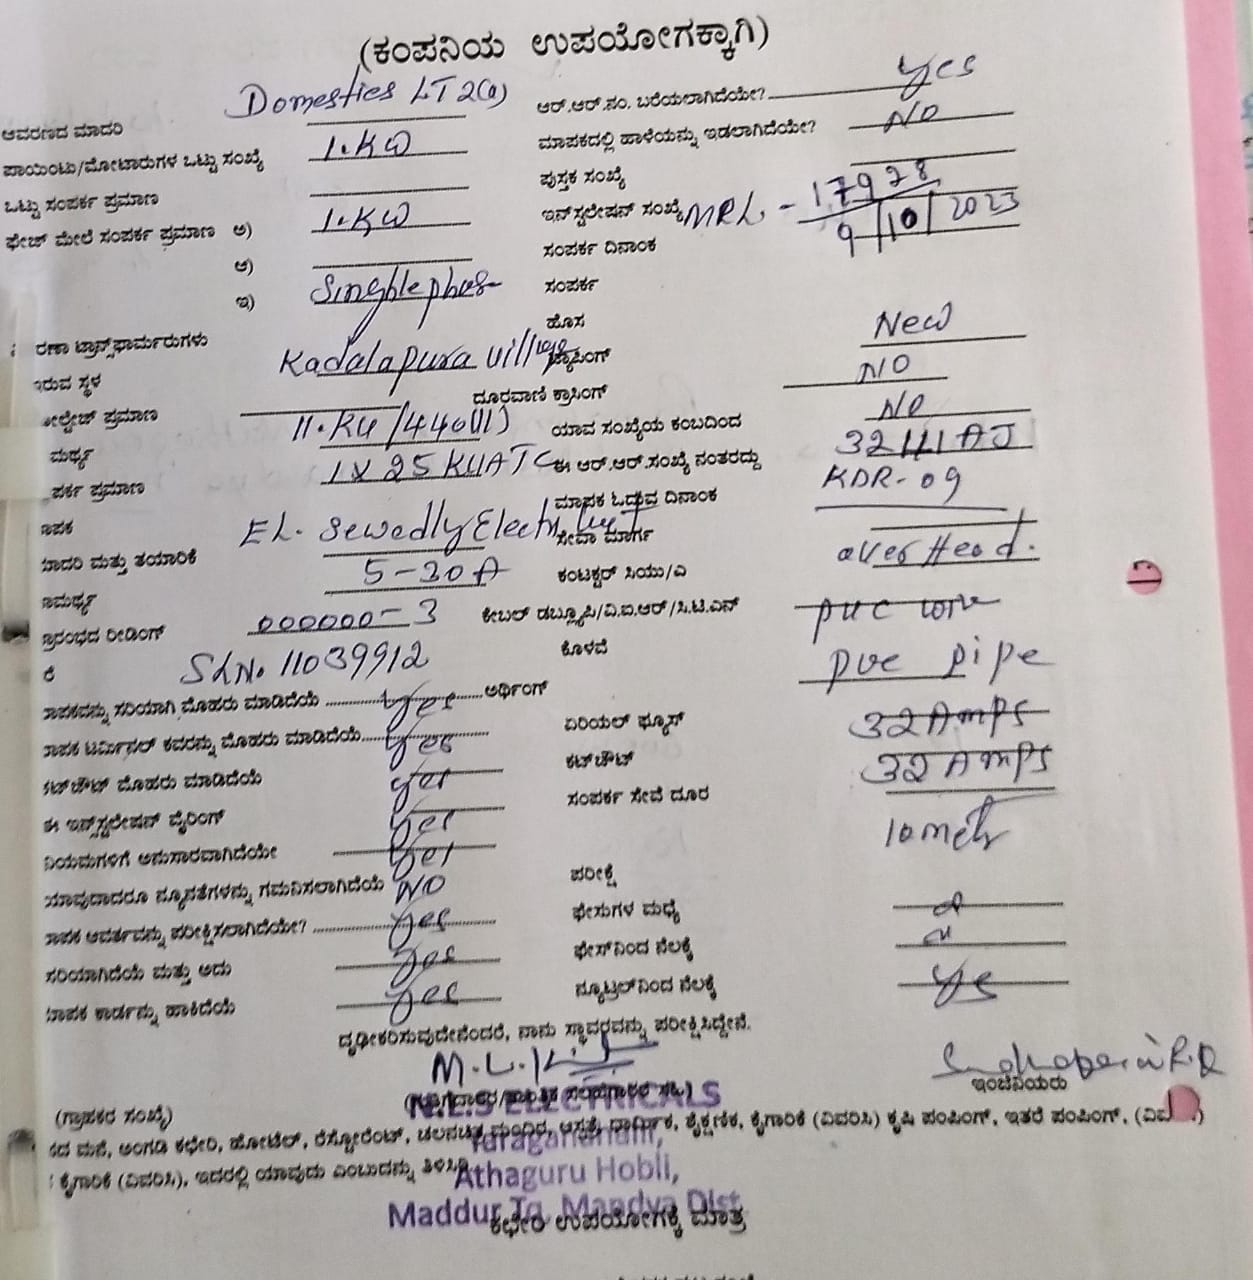 (ಕಂಪನಿಯ ಉಪಯೋಗಕ್ಕಾಗಿ)
ಆವರಣದ ಮಾದರಿ Domestics LT 2(a) ಆರ್.ಆರ್.ನಂ. ಬರೆಯಲಾಗಿದೆಯೇ? Yes
ಪಾಯಿಂಟು/ಮೋಟಾರುಗಳ ಒಟ್ಟು ಸಂಖ್ಯೆ 1.KW ಮಾಪಕದಲ್ಲಿ ಹಾಳೆಯನ್ನು ಇಡಲಾಗಿದೆಯೇ? NO
ಒಟ್ಟು ಸಂಪರ್ಕ ಪ್ರಮಾಣ ಪುಸ್ತಕ ಸಂಖ್ಯೆ
ಫೇಜ್ ಮೇಲೆ ಸಂಪರ್ಕ ಪ್ರಮಾಣ ಅ) 1.KW ಇನ್‌ಸ್ಟಲೇಷನ್ ಸಂಖ್ಯೆ MRL - 17928
ಆ) ಸಂಪರ್ಕ ದಿನಾಂಕ 9/10/2023
ಇ) Singhle phas ಸಂಪರ್ಕ
ರಣಾ ಟ್ರಾನ್ಸ್‌ಫಾರ್ಮರುಗಳು ಹೊಸ New
ಇರುವ ಸ್ಥಳ Kadalapura village ಕ್ರಾಸಿಂಗ್ NO
ೋಲ್ಟೇಜ್ ಪ್ರಮಾಣ ದೂರವಾಣಿ ಕ್ರಾಸಿಂಗ್ NO
ಮರ್ಥ್ಯ 11.KV/440 ಯಾವ ಸಂಖ್ಯೆಯ ಕಂಬದಿಂದ
ಪರ್ಕ ಪ್ರಮಾಣ 1X25 KVATC ಈ ಆರ್.ಆರ್.ಸಂಖ್ಯೆ ನಂತರದ್ದು AJ
ಾಪಕ ಮಾಪಕ ಓದುವ ದಿನಾಂಕ KDR-09
ಮಾದರಿ ಮತ್ತು ತಯಾರಿಕೆ EL. Sewedly Electri ಸೇವಾ ಮಾರ್ಗ over Head.
ಸಾಮರ್ಥ್ಯ 5-30A ಕಂಟಕ್ಟರ್ ಸಿಯು/ಎ
ಪ್ರಾರಂಭದ ರೀಡಿಂಗ್ 000000-3 ಕೇಬಲ್ ಡಬ್ಲ್ಯೂಪಿ/ವಿ.ಐ.ಆರ್/ಸಿ.ಟಿ.ಎನ್ puc
ರೆ SLNo 11039912 ಕೊಳವೆ pve pipe
ಮಾಪಕವನ್ನು ಸರಿಯಾಗಿ ಮೊಹರು ಮಾಡಿದೆಯೆ yes ಅರ್ಥಿಂಗ್
ಮಾಪಕ ಟರ್ಮಿನಲ್ ಕವರನ್ನು ಮೊಹರು ಮಾಡಿದೆಯೆ yes ಏರಿಯಲ್ ಫ್ಯೂಸ್ 32 Amps
ಕಟ್‌ಔಟ್ ಮೊಹರು ಮಾಡಿದೆಯೆ yes ಕಟ್‌ಔಟ್ 32 Amps
ಈ ಇನ್ಸ್‌ಸ್ಟಲೇಷನ್ ವೈರಿಂಗ್ yes ಸಂಪರ್ಕ ಸೇವೆ ದೂರ 10 metr
ನಿಯಮಗಳಿಗೆ ಅನುಸಾರವಾಗಿದೆಯೇ yes
ಯಾವುದಾದರೂ ನ್ಯೂನತೆಗಳನ್ನು ಗಮನಿಸಲಾಗಿದೆಯೆ NO ಪರೀಕ್ಷೆ
ಮಾಪಕ ಆವರ್ತವನ್ನು ಪರೀಕ್ಷಿಸಲಾಗಿದೆಯೇ? yes ಫೇಸುಗಳ ಮಧ್ಯೆ
ಸರಿಯಾಗಿದೆಯೆ ಮತ್ತು ಅದು yes ಫೇಸ್‌ನಿಂದ ನೆಲಕ್ಕೆ
ಮಾಪಕ ಕಾರ್ಡನ್ನು ಹಾಕಿದೆಯೆ yes ನ್ಯೂಟ್ರಲ್‌ನಿಂದ ನೆಲಕ್ಕೆ yes
ದೃಢೀಕರಿಸುವುದೇನೆಂದರೆ, ನಾನು ಸ್ಥಾವರವನ್ನು ಪರೀಕ್ಷಿಸಿದ್ದೇನೆ.
ಇಂಜಿನಿಯರು
(ಗ್ರಾಹಕರ ಸಂಖ್ಯೆ)
N.L.S ELECTRICALS
ಕದ ಮನೆ, ಅಂಗಡಿ ಕಛೇರಿ, ಹೋಟೆಲ್, ರೆಸ್ಟೋರೆಂಟ್, ಚಲನಚಿತ್ರ ಮಂದಿರ, ಆಸ್ಪತ್ರೆ, ಧಾರ್ಮಿಕ, ಶೈಕ್ಷಣಿಕ, ಕೈಗಾರಿಕೆ (ವಿವರಿಸಿ) ಕೃಷಿ ಪಂಪಿಂಗ್, ಇತರೆ ಪಂಪಿಂಗ್,
ಕೈಗಾರಿಕೆ (ವಿವರಿಸಿ), ಇದರಲ್ಲಿ ಯಾವುದು ಎಂಬುದನ್ನು ತಿಳಿಸಿ
Athaguru Hobli,
Maddur Tq, Mandya Dist
ಕಛೇರಿ ಉಪಯೋಗಕ್ಕೆ ಮಾತ್ರ